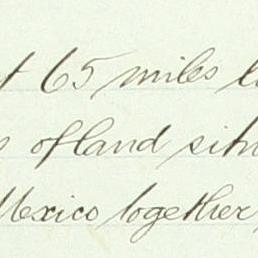 65 miles
of land
Mexico together